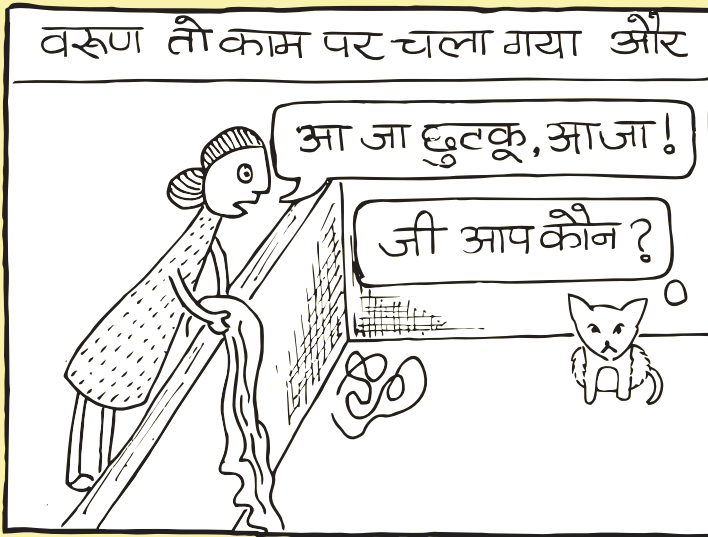 वरूण तो काम पर चला गया और
आ जा छुटकू, आजा!
जी आप कौन?